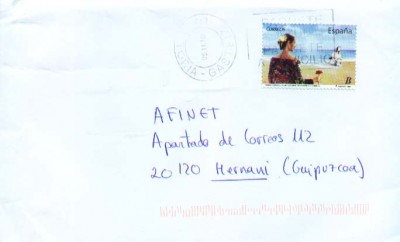 CORREOS
España
B
AFINET
Apartado de Correos 112
20120 Hernani (Guipuzcoa)